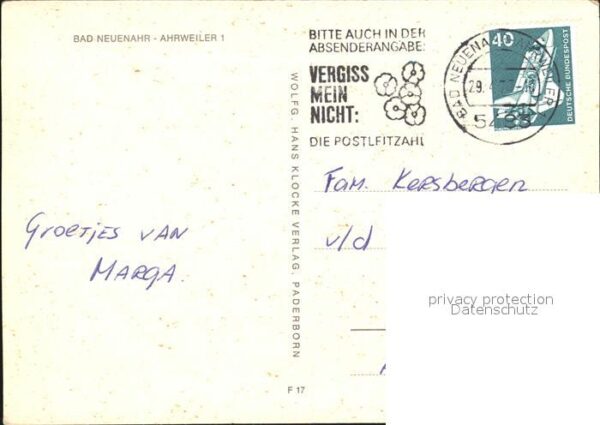 BAD NEUENAHR - AHRWEILER 1
Groetjes van
Marga.
WOLFG. HANS KLOCKE VERLAG, PADERBORN
F 17
BITTE AUCH IN DER
ABSENDERANGABE:
VERGISS
MEIN
NICHT:
DIE POSTLEITZAHL
BAD NEUENAHR-AHRWEILER
29.4.
5483
40
DEUTSCHE BUNDESPOST
Fam. Kersbergen
v/d
privacy protection
Datenschutz